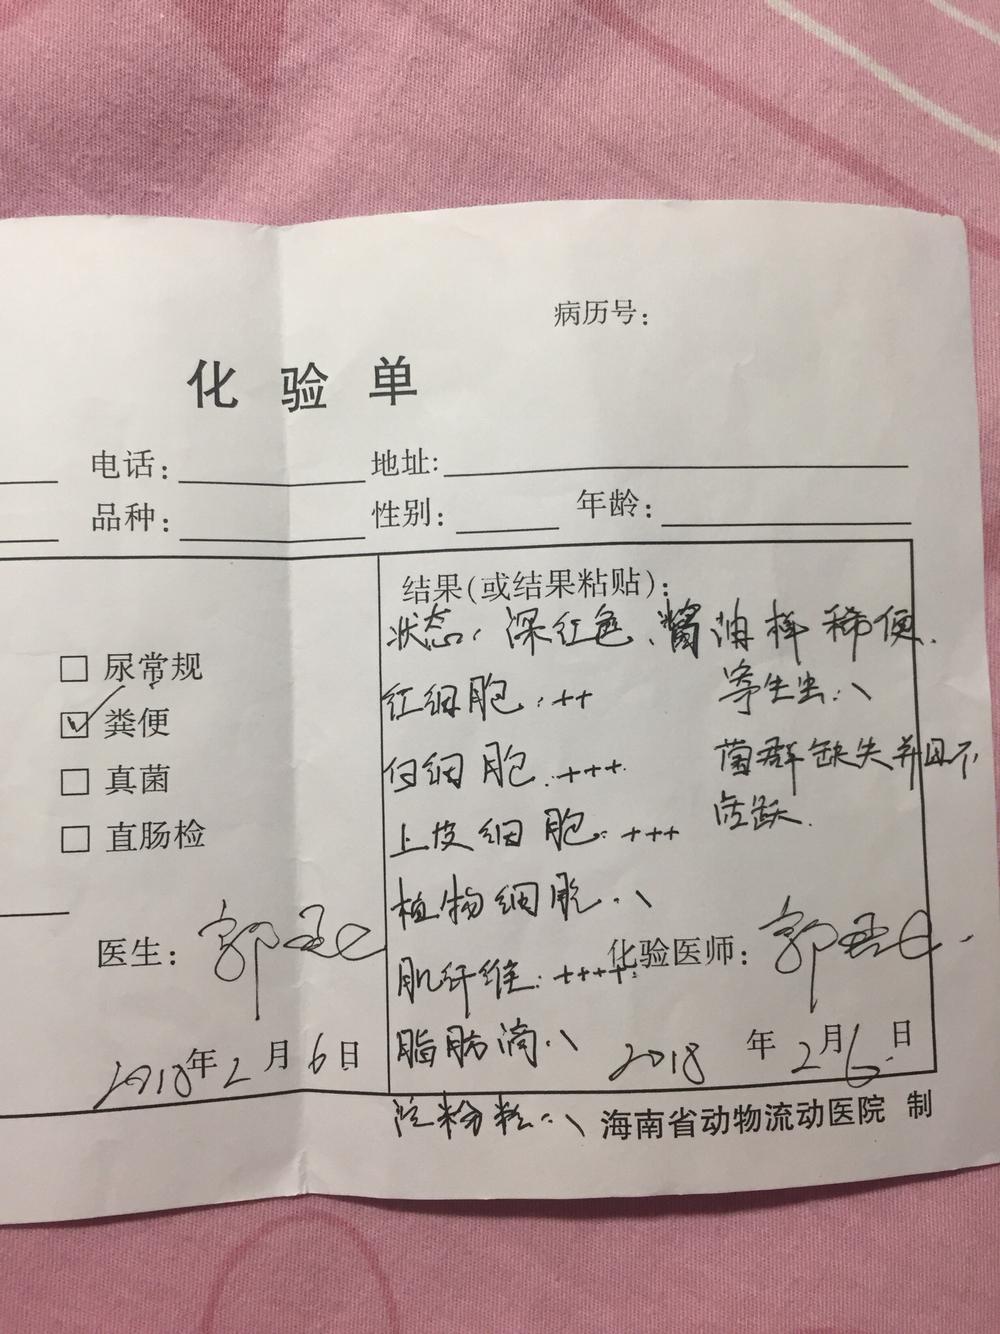 病历号：
化验单
电话： 地址：
品种： 性别： 年龄：
结果(或结果粘贴)：
状态：深红色、酱油样稀便.
□ 尿常规
☑ 粪便
□ 真菌
□ 直肠检
红细胞：++
白细胞：+++
上皮细胞：+++
植物细胞：\
肌纤维：++++
脂肪滴：\
淀粉粒：\
寄生虫：\
菌群缺失并且不
活跃.
医生：郭
2018年2月6日
化验医师：郭
2018年2月6日
海南省动物流动医院 制